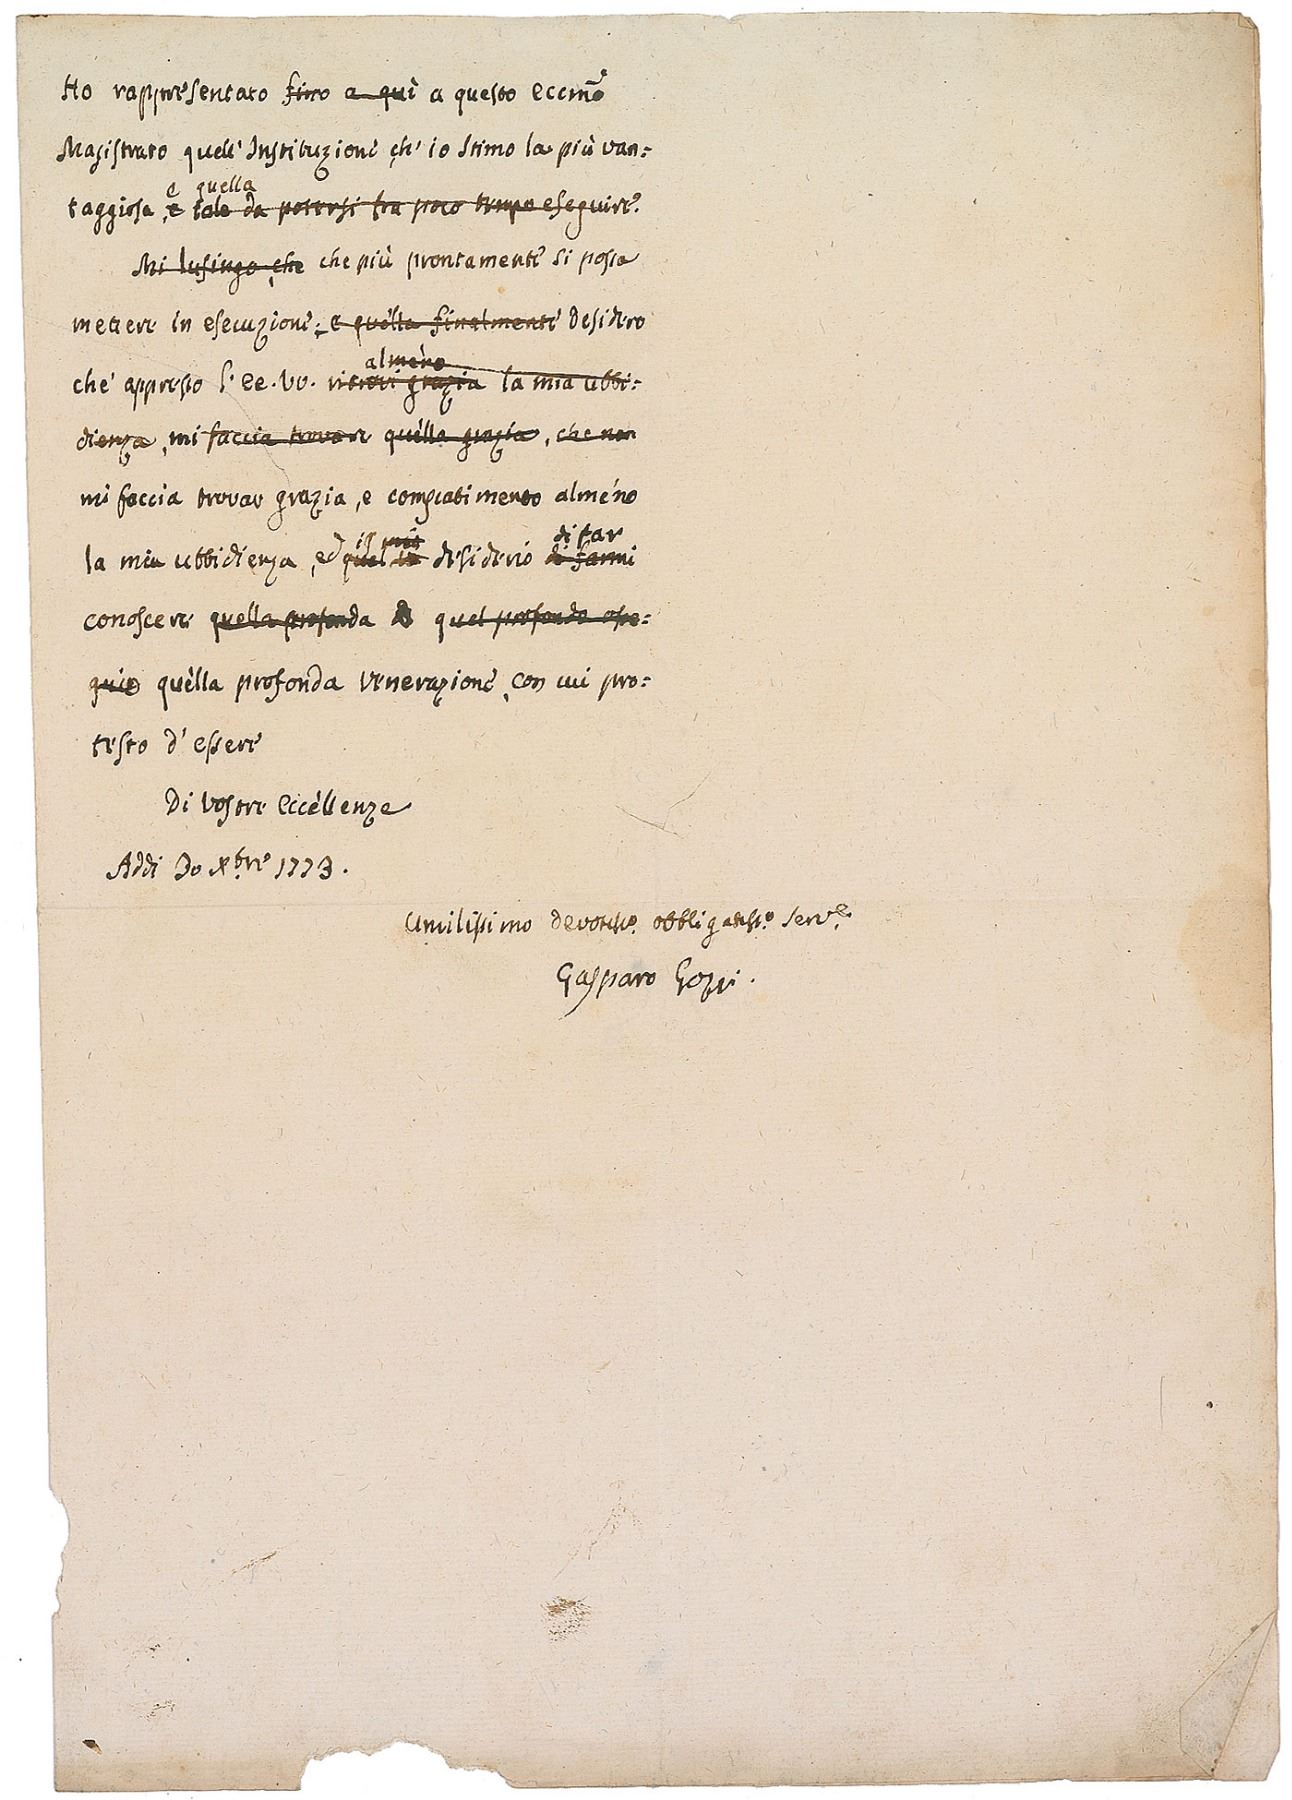 Ho rappresentato fino a quì a questo Eccmõ
Magistrato quell' Instituzione ch' io stimo la più van:
e quella
taggiosa, e tale da potersi fra poco tempo eseguire.
Mi lusingo, che che più prontamente si possa
mettere in esecuzione; e quella finalmente desidero
almeno
che appresso l' EE. VV. ritrovi grazia la mia ubbi:
dienza, mi faccia trovare quella grazia, che non
mi faccia trovar grazia, e compatimento almeno
il mio di far
la mia ubbidienza, ed quel desiderio di farmi
conoscere quella profonda quel profondo osse:
quio quella profonda venerazione, con cui pro:
testo d' essere
Di Vostre Eccellenze
Addi 30 Xbre 1773.
Umilissimo devotiss.o obbligatiss.o serv.e
Gasparo Gozzi.